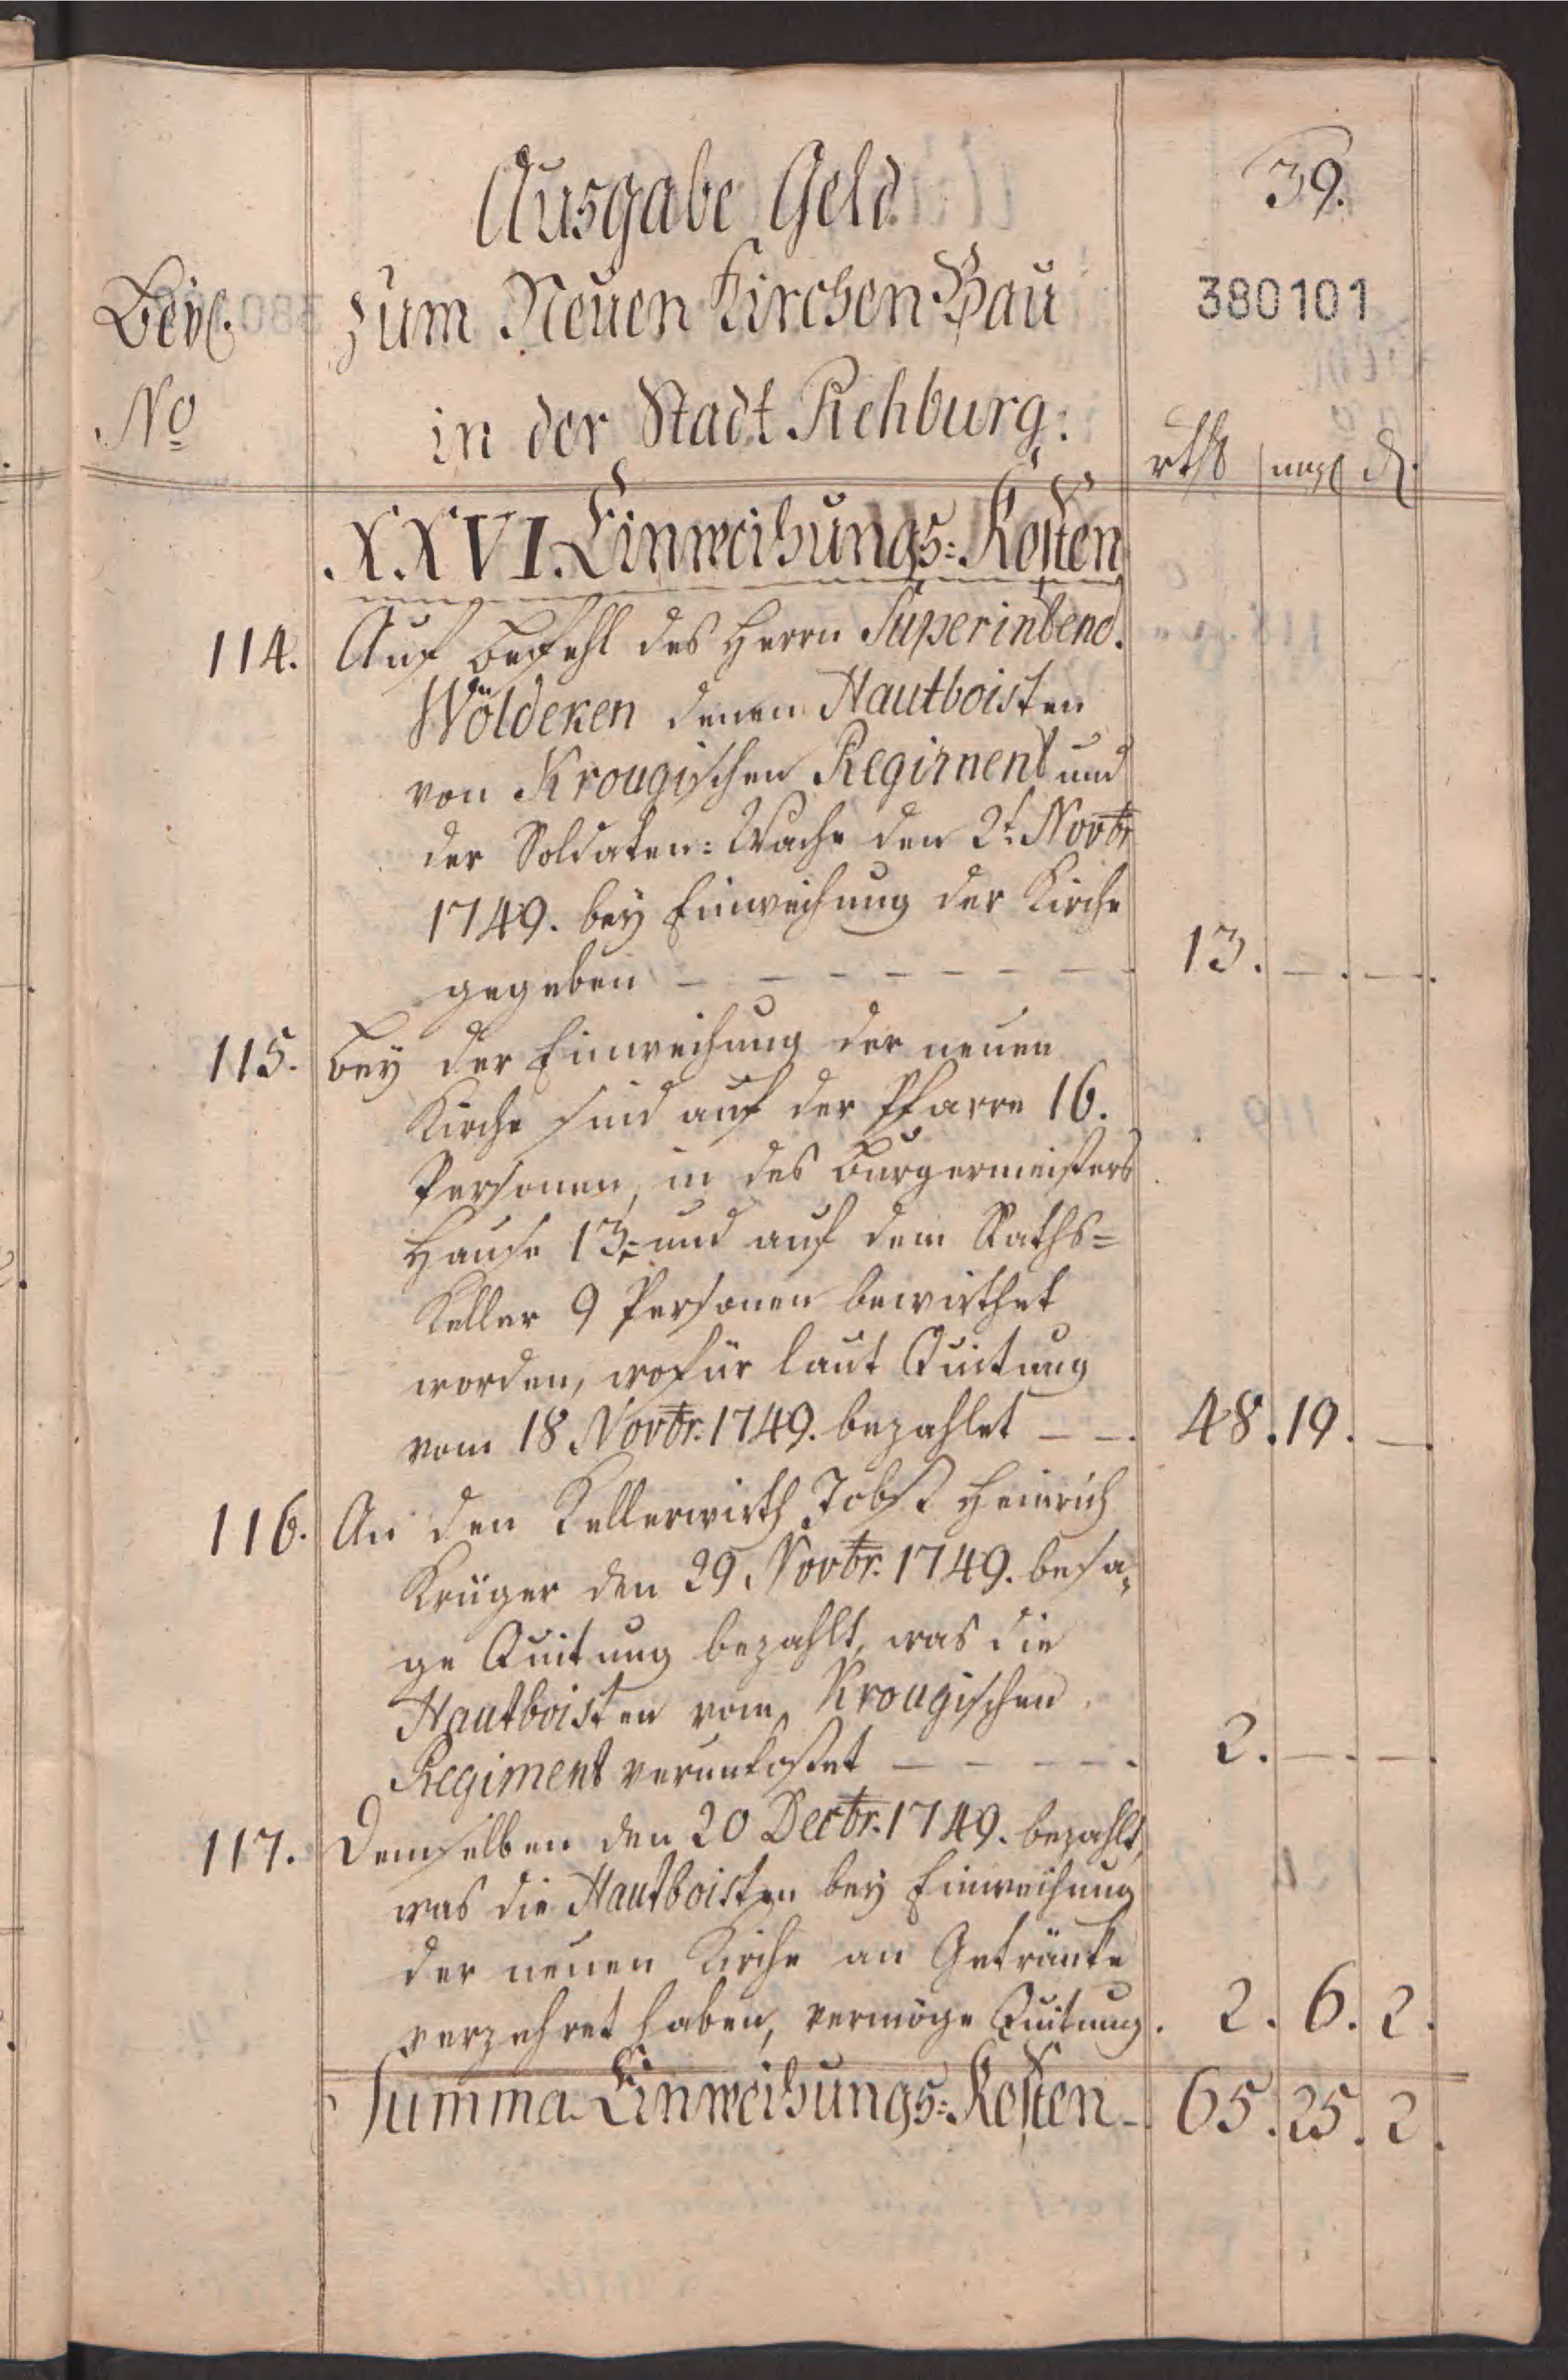 39.
Ausgabe Geld
380101
Beyl. zum Neuen Kirchen Bau
No in der Stadt Rehburg.
rthl mgl d.
XXVI. Einweihungs-Kosten
114. Auf Befehl des Herrn Superintend.
Wöldeken denen Hautboisten
von Krougischen Regiment und
der Soldaten-Wache den 2t. Novbr
1749. bey Einweihung der Kirche
gegeben - - - - - - - - 13. - . - .
115. Bey der Einweihung der neuen
Kirche sind auf der Pfarre 16.
Personen, in des Burgermeisters
Hause 13. und auf dem Raths-
Keller 9 Personen bewirthet
worden, wofür laut Quitung
vom 18 Novbr. 1749. bezahlet - - . 48. 19. - .
116. An den Kellerwirth Jobst Heinrich
Krüger den 29 Novbr. 1749. besa-
ge Quitung bezahlt, was die
Hautboisten vom Krougischen
Regiment verunkostet - - - - . 2. - . - .
117. Demselben den 20 Decbr. 1749. bezahlt,
was die Hautboisten bey Einweihung
der neuen Kirche an Getränke
verzehret haben, vermöge Quitung. 2. 6. 2.
Summa Einweihungs-Kosten - 65. 25. 2.